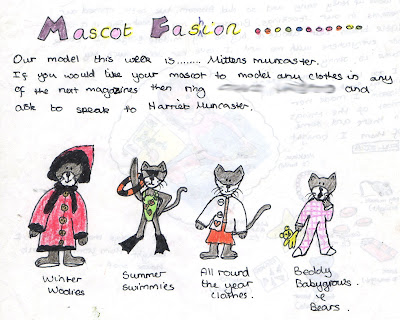 Mascot Fashion ..........
Our model this week is........ Mittens Muncaster.
If you would like your mascot to model any clothes in any
of the next magazines then ring and
ask to speak to Harriet Muncaster.
Winter
Woolies
Summer
Swimmies
All round
the year
clothes.
Beddy
Babygrows
&
Bears.